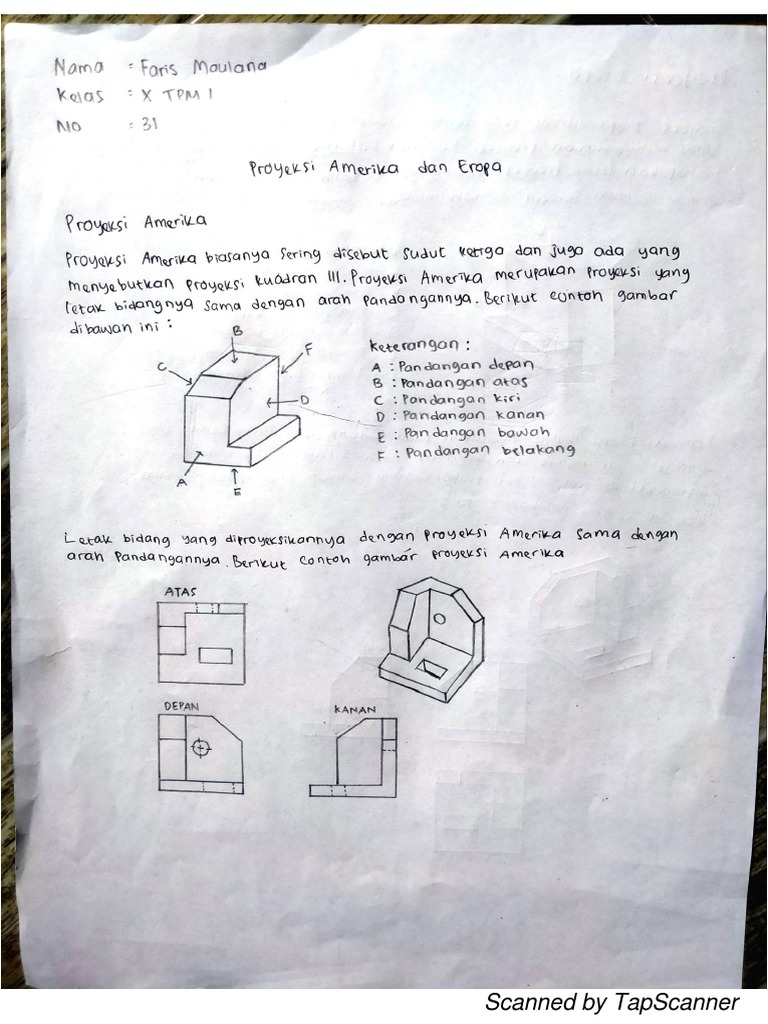 Nama : Faris Maulana
Kelas : X TPM 1
No : 31
Proyeksi Amerika dan Eropa
Proyeksi Amerika
Proyeksi Amerika biasanya sering disebut sudut ketiga dan juga ada yang
menyebutkan proyeksi kuadran III. Proyeksi Amerika merupakan proyeksi yang
letak bidangnya sama dengan arah pandangannya. Berikut contoh gambar
dibawah ini :
B
F
C
D
A
E
Keterangan :
A : Pandangan depan
B : Pandangan atas
C : Pandangan kiri
D : Pandangan kanan
E : Pandangan bawah
F : Pandangan belakang
Letak bidang yang diproyeksikannya dengan proyeksi Amerika sama dengan
arah pandangannya. Berikut contoh gambar proyeksi Amerika
ATAS
DEPAN
KANAN
Scanned by TapScanner